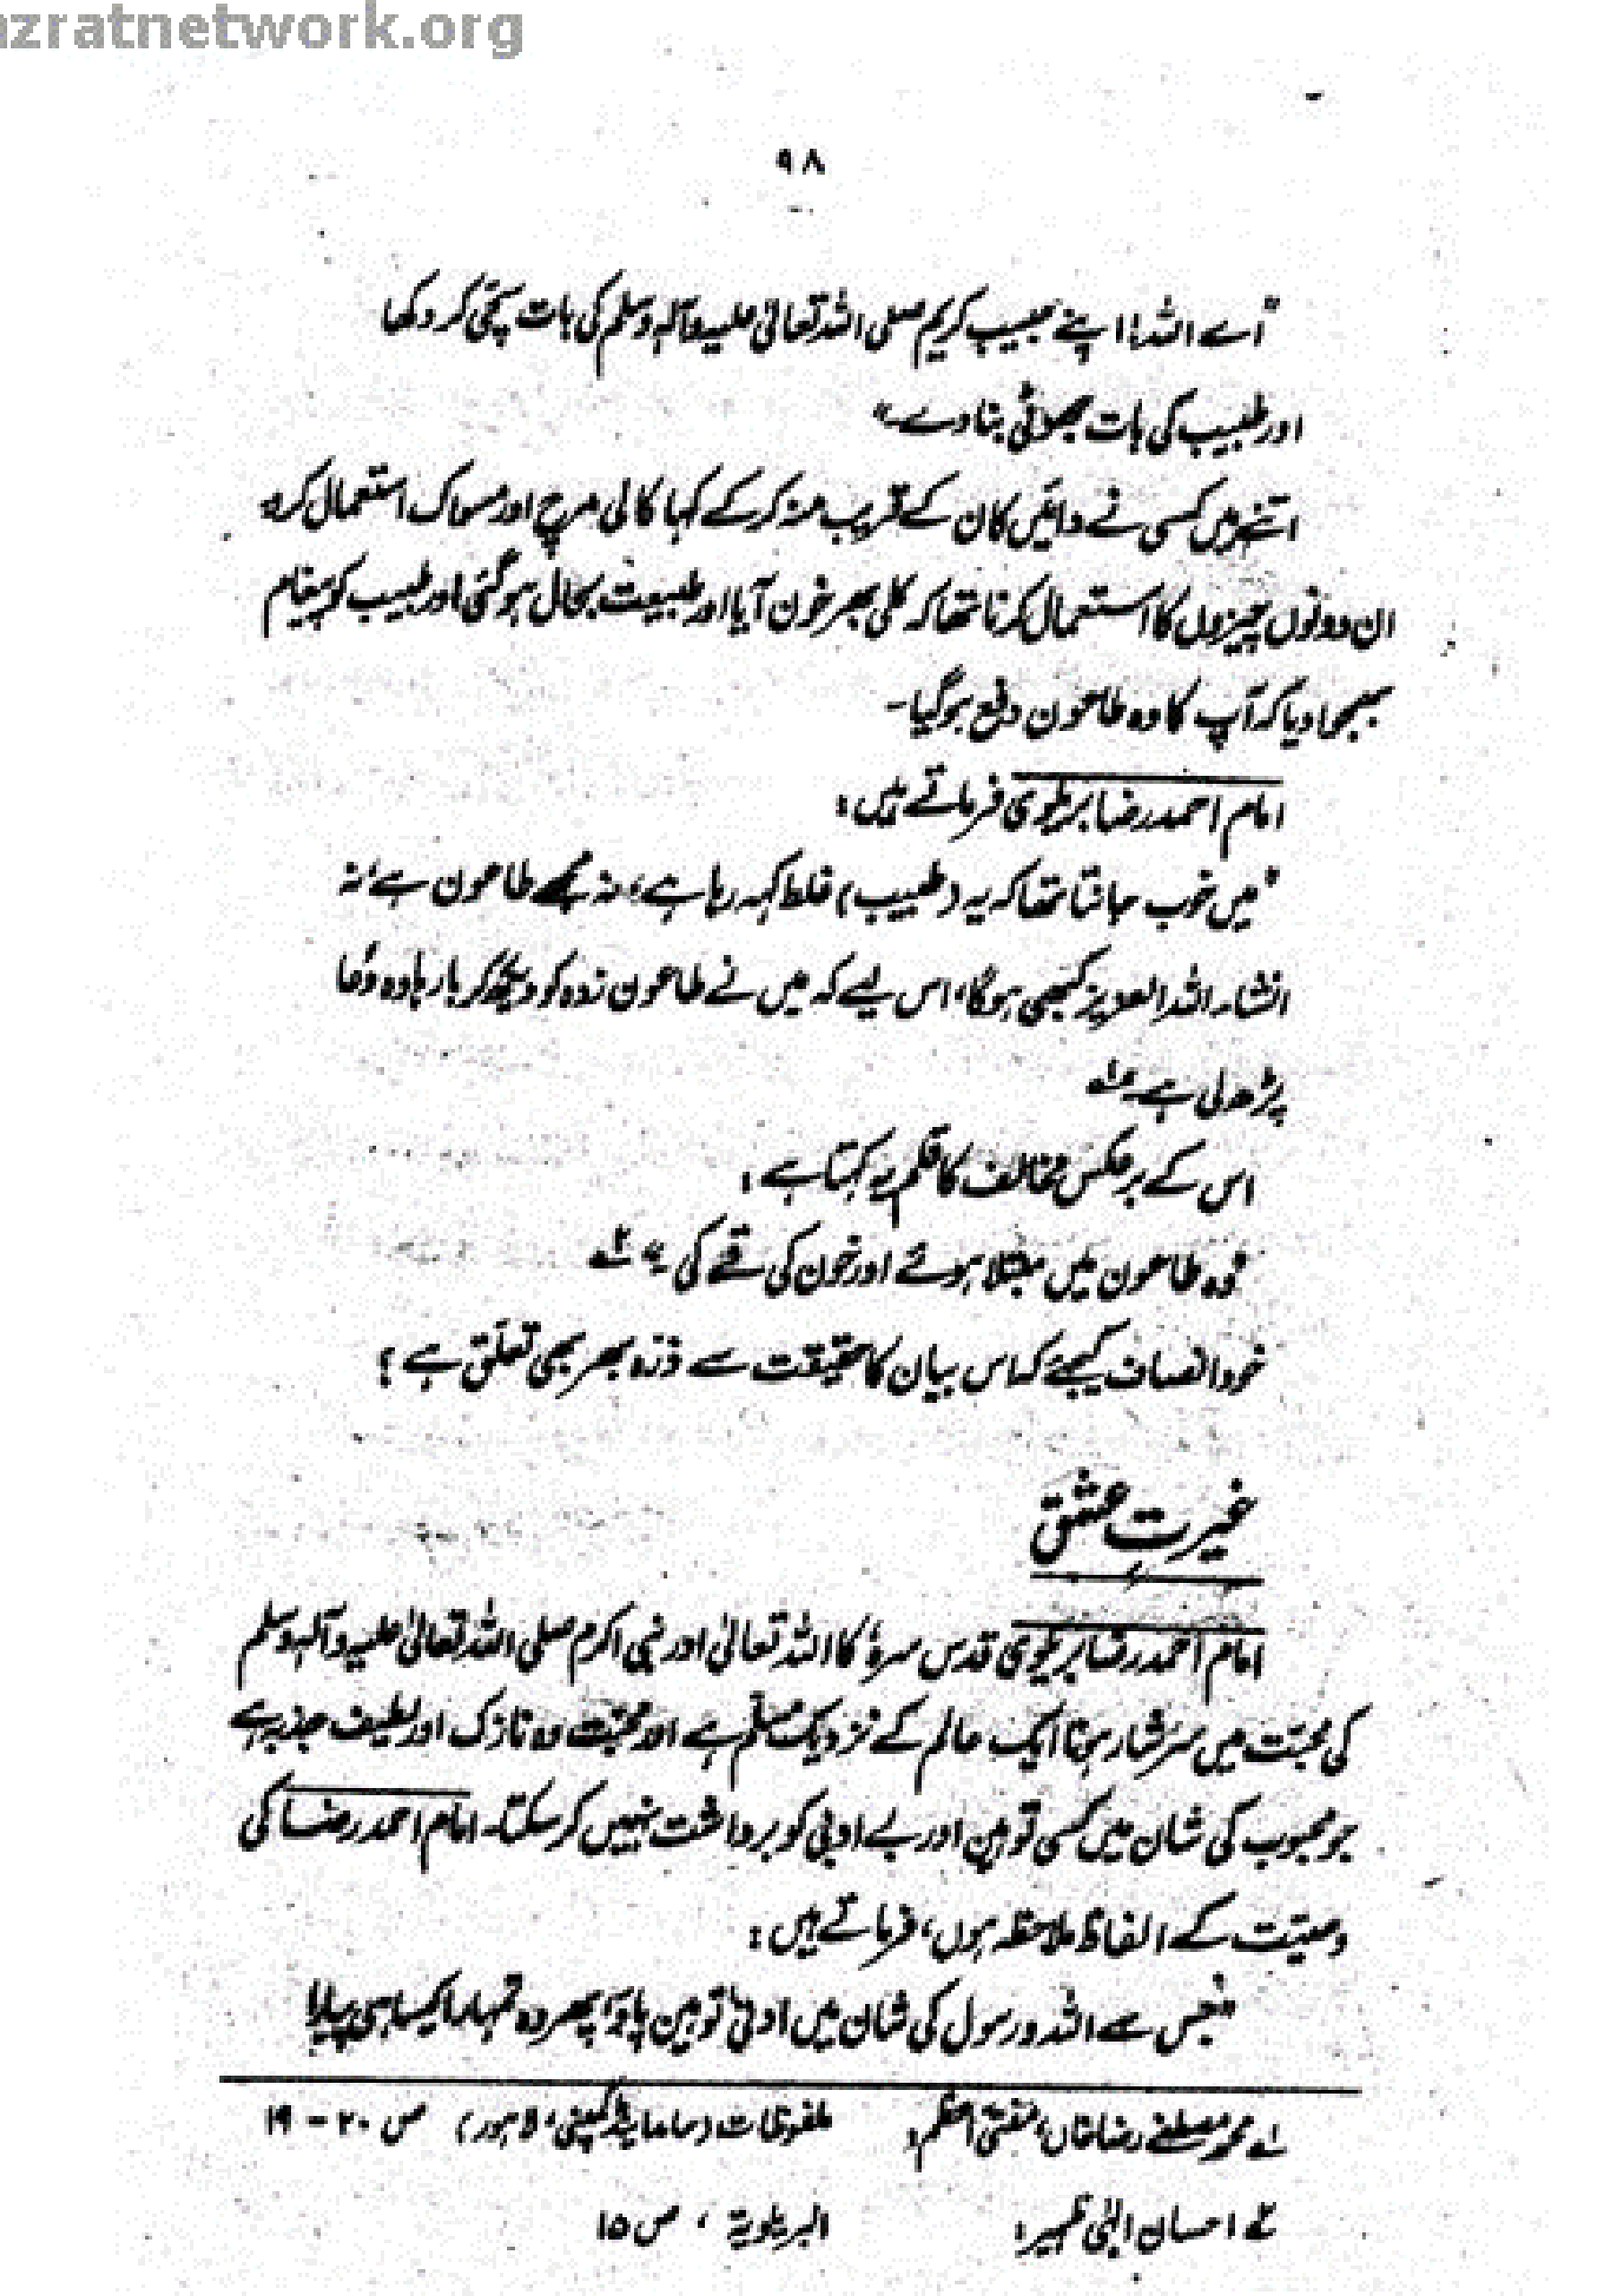 azratnetwork.org
۹۸
"اے اللہ! اپنے حبیب کریم صلی اللہ تعالیٰ علیہ وآلہٖ وسلم کی بات سچّی کر دکھا
اور طبیب کی بات جھوٹی بنا دے۔"
اتنے میں کسی نے دائیں کان کے قریب منہ کر کے کہا کالی مرچ اور مسواک استعمال کرو
ان دونوں چیزوں کا استعمال کرنا تھا کہ کلی بھر خون آیا اور طبیعت بحال ہو گئی اور طبیب کو پیغام
بھجوا دیا کہ آپ کا وہ طاعون دفع ہو گیا۔
امام احمد رضا بریلوی فرماتے ہیں:
"میں خوب جانتا تھا کہ یہ (طبیب) غلط کہہ رہا ہے، نہ مجھے طاعون ہے، نہ
انشاء اللہ العزیز کبھی ہوگا، اس لیے کہ میں نے طاعون زدہ کو دیکھ کر بارہا وہ دُعا
پڑھ لی ہے۔ ؎۱
اس کے برعکس مخالف کا قلم یہ کہتا ہے:
"وہ طاعون میں مبتلا ہوئے اور خون کی قے کی۔" ؎۲
خود انصاف کیجئے کہ اس بیان کا حقیقت سے ذرّہ بھر بھی تعلّق ہے؟
غیرتِ عشق
امام احمد رضا بریلوی قدس سرہٗ کا اللہ تعالیٰ اور نبی اکرم صلی اللہ تعالیٰ علیہ وآلہٖ وسلم
کی محبّت میں سرشار ہونا ایک عالم کے نزدیک مسلّم ہے اور محبّت وہ نازک اور لطیف جذبہ ہے
جو محبوب کی شان میں کسی توہین اور بے ادبی کو برداشت نہیں کر سکتا۔ امام احمد رضا کی
وصیّت کے الفاظ ملاحظہ ہوں، فرماتے ہیں:
"جس سے اللہ و رسول کی شان میں ادنیٰ توہین پاؤ، پھر وہ تمہارا کیسا ہی پیارا
؎۱ محمد مصطفےٰ رضا خاں، مفتی اعظم: ملفوظات (حامد اینڈ کمپنی، لاہور) ص ۲۰ - ۱۹
؎۲ احسان الٰہی ظہیر: البریلویۃ، ص ۱۵